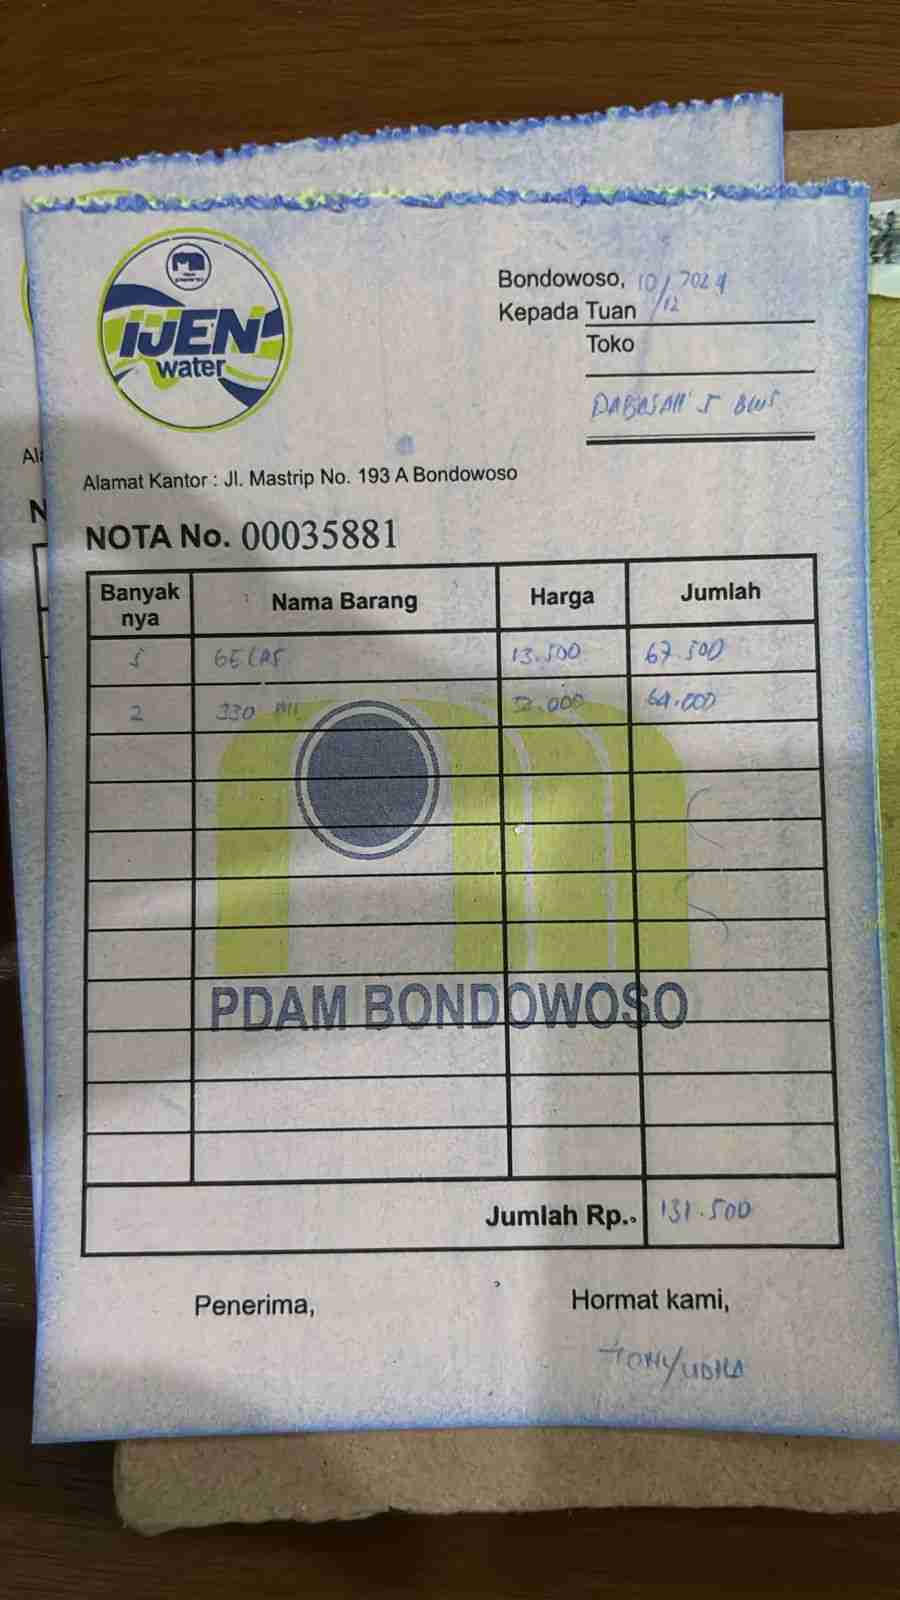 IJEN
water
Bondowoso, 10/12 2024
Kepada Tuan
Toko
DABASAH 5 BWS
Al
Alamat Kantor : Jl. Mastrip No. 193 A Bondowoso
N
NOTA No. 00035881
Banyak nya Nama Barang Harga Jumlah
5 GELAS 13.500 67.500
2 330 Ml 32.000 64.000
PDAM BONDOWOSO
Jumlah Rp. 131.500
Penerima, Hormat kami,